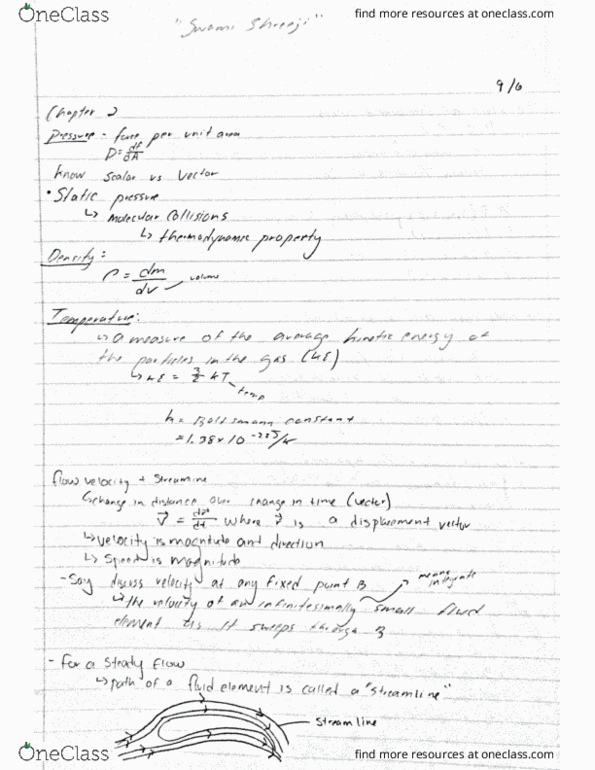 OneClass find more resources at oneclass.com
"Swami Shreeji"
9/6
Chapter 2
Pressure - force per unit area
P = dF/dA
know Scalar vs Vector
• Static pressure
↳ molecular collisions
↳ thermodynamic property
Density:
ρ = dm/dv volume
Temperature:
↳ a measure of the average kinetic energy of
the particles in the gas (KE)
↳ KE = 3/2 kT temp
k = Boltzmann constant
= 1.38 x 10^-23 J/K
flow velocity + Streamline
↳ change in distance over change in time (vector)
where r⃗ is a displacement vector
↳ velocity is magnitude and direction
↳ Speed is magnitude
- Say discuss velocity at any fixed point B means integrate
↳ the velocity of an infinitesimally small fluid
element as it sweeps through B
- For a Steady flow
↳ path of a fluid element is called a "streamline"
Streamline
OneClass find more resources at oneclass.com